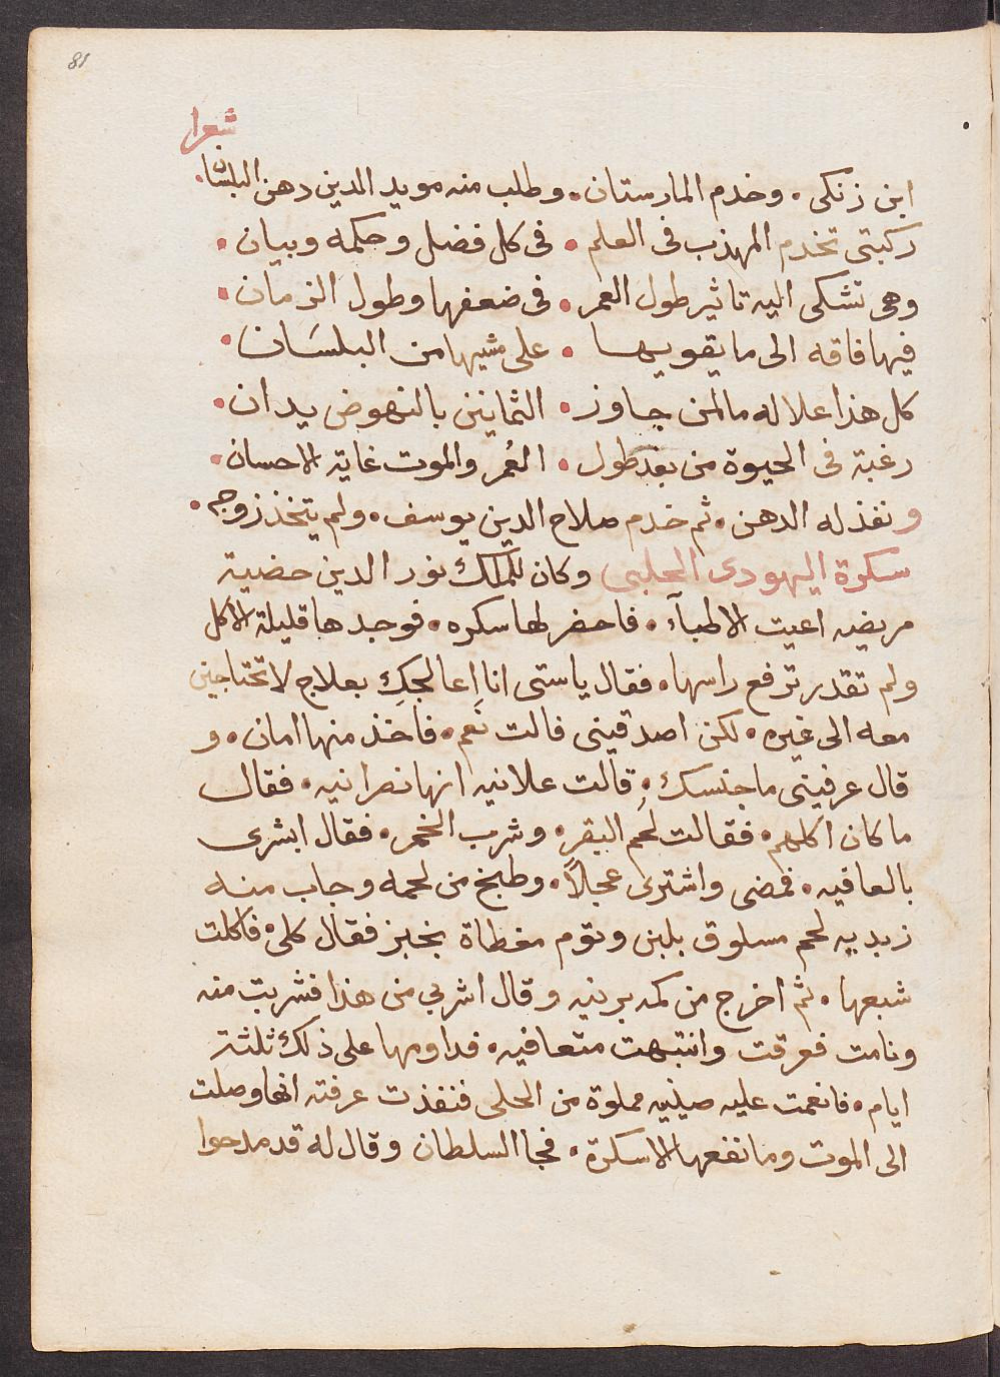 81
شعرا
ابن زنكى . وخدم المارستان . وطلب منه مويد الدين دهن البلسان .
ركبتى تخدم المهذب فى العلم . فى كل فضل وحكمه وبيان .
وهى تشكى اليه تاثير طول العمر . فى ضعفها وطول الزمان .
فيها فاقه الى ما يقويها . على مشيها من البلسَان .
كل هذا علاله مالمن جاوز . الثمانين بالنهوض يدان .
رغبة فى الحيوة من بعد طول . العُمر والموت غاية الاحسان .
ونفذ له الدهن . ثم خدم صلاح الدين يوسف . ولم يتخذ زوجه .
سكرة اليهودى الحلبى وكان للملك نور الدين حضية
مريضه اعيت الاطبآء . فاحضر لها سكره . فوجدها قليلة الاكل
ولم تقدر ترفع راسها . فقال ياستى انا اعالجكِ بعلاج لا تحتاجين
معه الى غيره . لكن اصدقينى قالت نَعم . فاخذ منها امان . و
قال عرفينى ما جنسك . قالت علانيه انها نصرانيه . فقال
ما كان اكلهم . فقالت لحَم البقر . وشرب الخمر . فقال ابشرى
بالعافيه . فمضى واشترى عجلاً . وطبخ من لحمه وجاب منه
زبديه لحم مسلوق بلبن وتوم مغطاة بخبز فقال كلى فاكلت
شبعها . ثم اخرج من كمه برنيه وقال اشربى من هذا فشربت منه
ونامت فعرقت وانتبهت متعافيه . فداومها على ذلك ثلثة
ايام . فانعمت عليه صينيه مملوة من الحلى فنفذت عرفته انها وصلت
الى الموت وما نفعها الا سكرة . فجا السلطان وقال له قد مدحوا